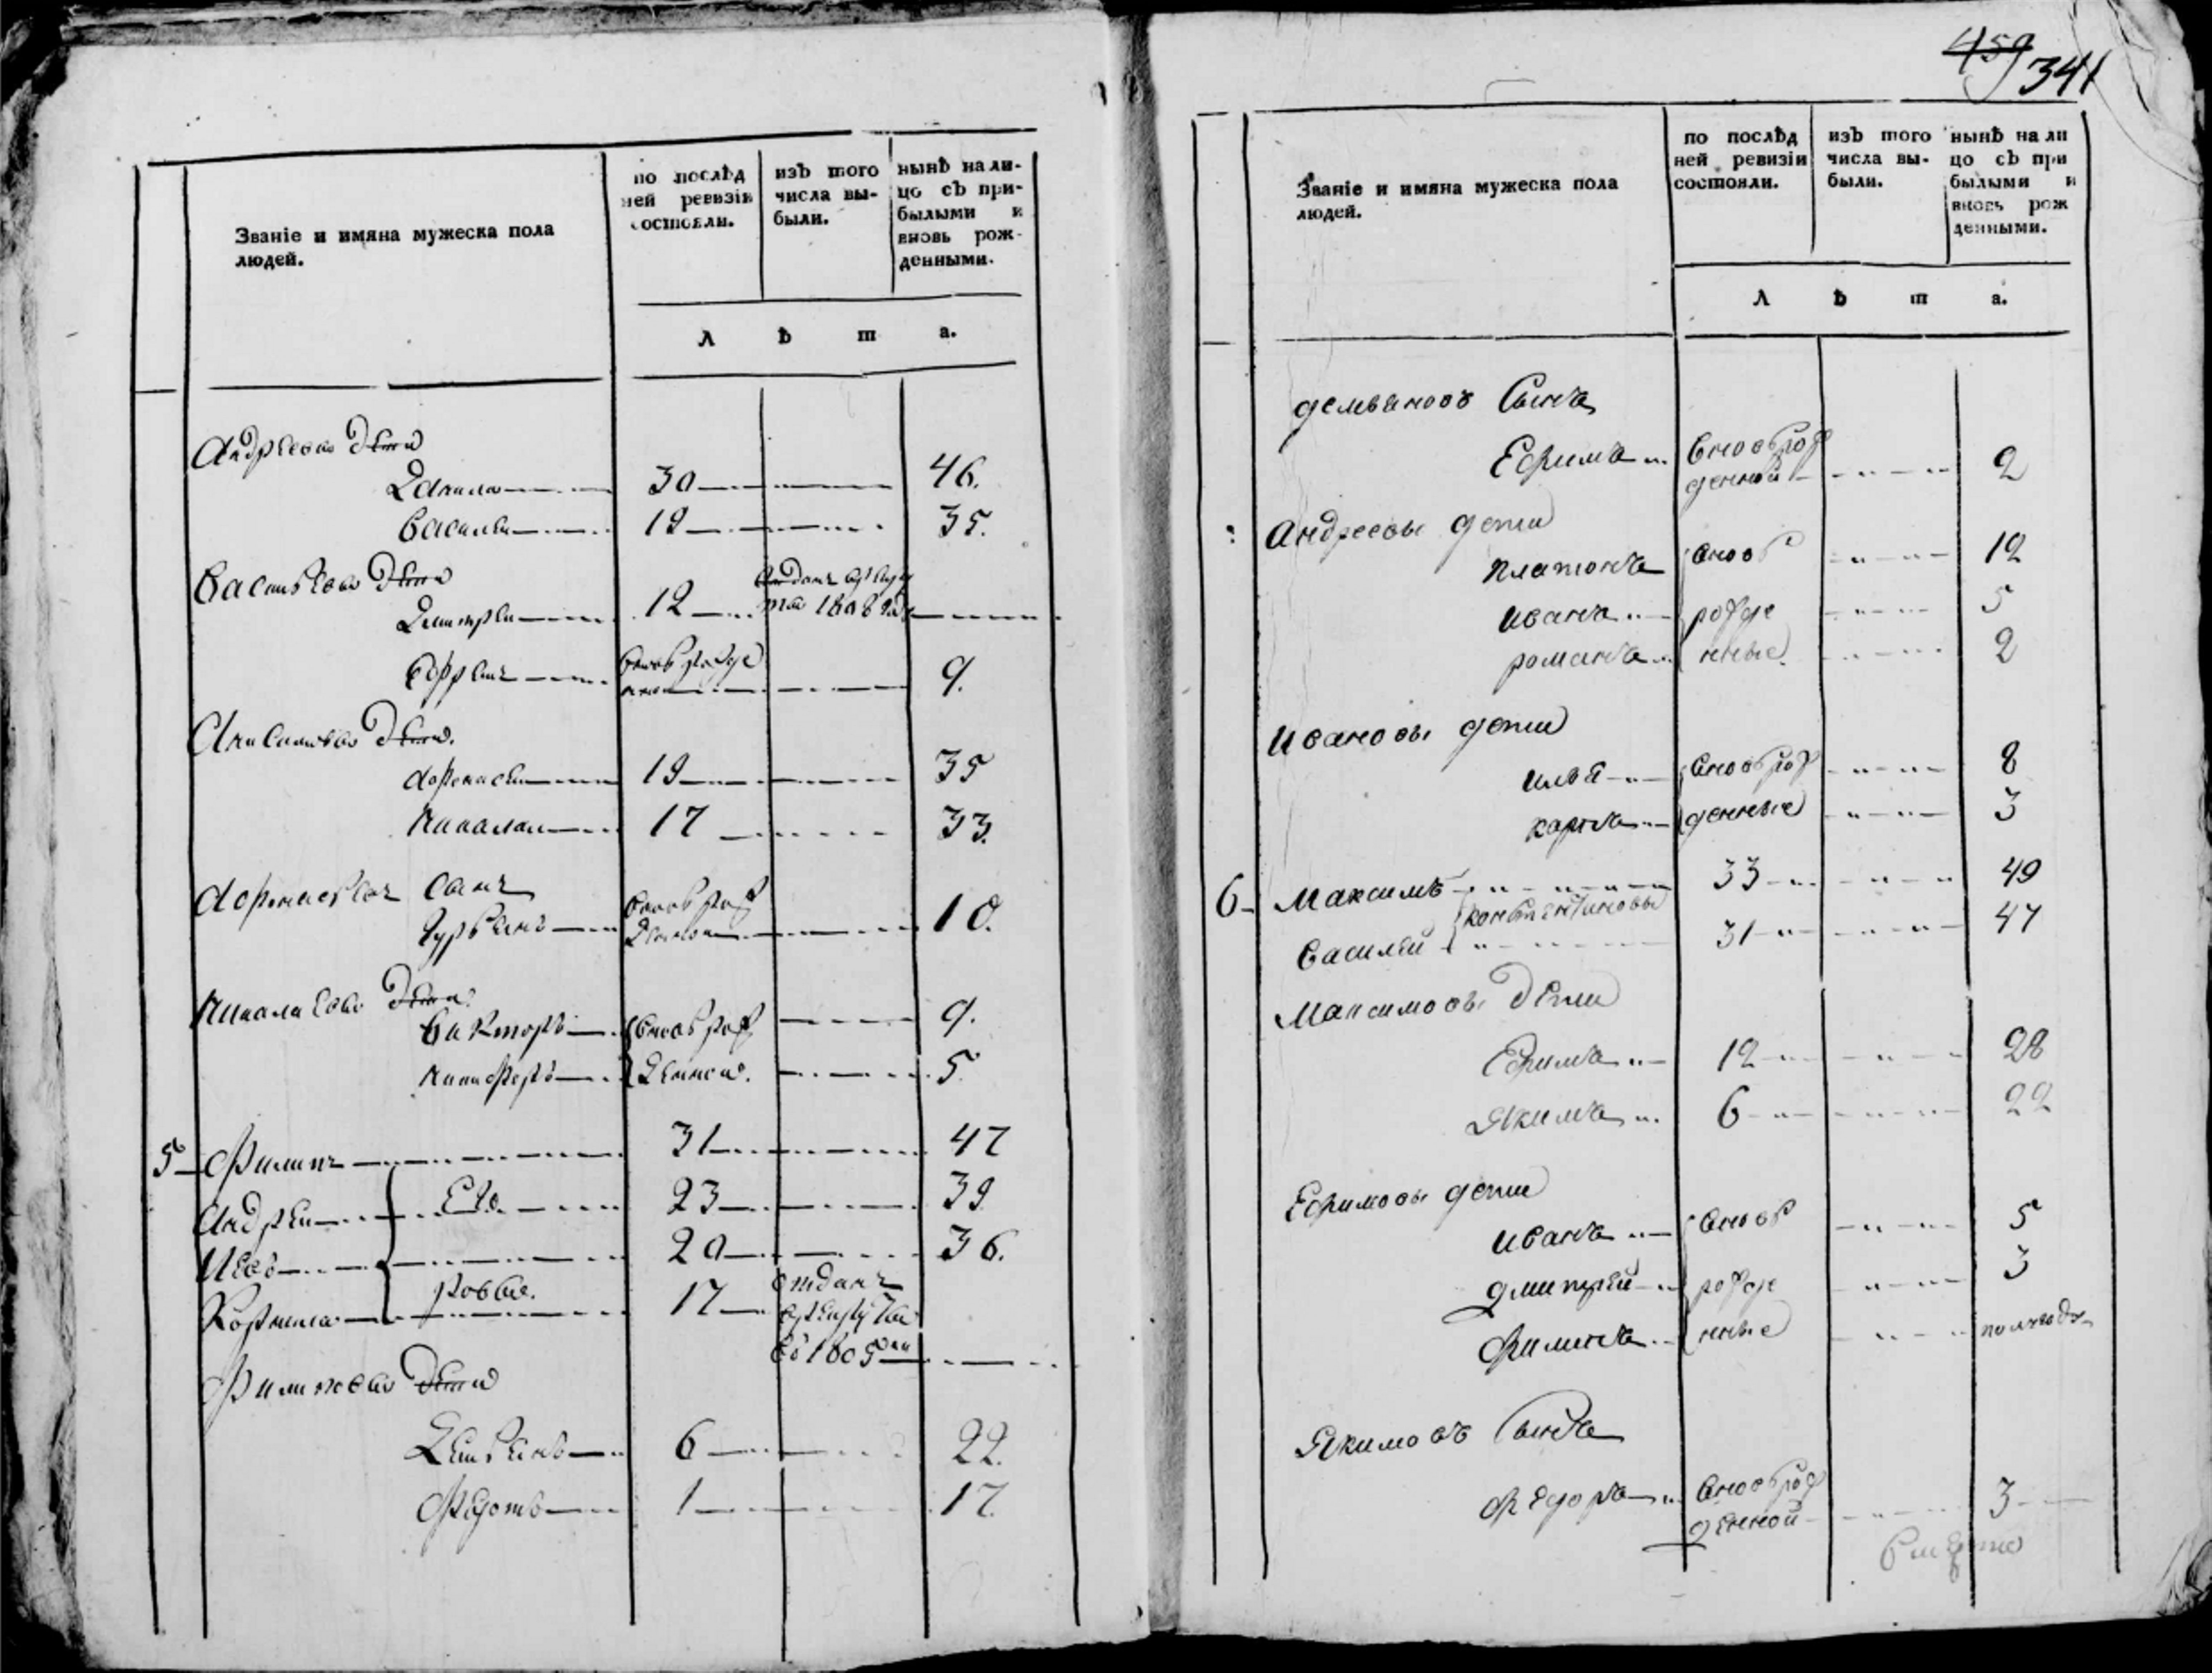 459 341
Званіе и имяна мужеска пола людей.
по послѣдней ревизіи состояли.
изъ того числа выбыли.
нынѣ налицо съ прибылыми и вновь рожденными.
л ѣ т а.
Андреевы дети
Данила 30 46.
Василеи 19 35.
Васильевы дети
Дмитреи 12 отданъ врекруты 1808 года
Ефремъ вновь рожденнои 9.
Анисимовы дети.
Афонасеи 19 35
Николаи 17 33.
Афонасьевъ сынъ
Гурьянъ вновь рожденнои 10.
Николаевы дети
Викторъ вновь рож 9.
Никифоръ денные. 5.
5 Филипъ 31 47
Андреи Его 23 39
Иевъ 20 36.
Корнила ровые. 17 отданъ
врекруты
въ 1805мъ
Филиповы дети
Демьянъ 6 22.
Федотъ 1 17.
Званіе и имяна мужеска пола людей.
по послѣдней ревизіи состояли.
изъ того числа выбыли.
нынѣ на лицо съ прибылыми и вновь рожденными.
л ѣ т а.
демьяновъ Сынъ
Ефимъ вновь рожденной 2
Андреевы дети
Платонъ вновь 12
иванъ рожде 5
романъ нные. 2
Ивановы дети
илья вновь рож 8
карпъ денные 3
6 Максимъ 33 49
Констентиновы
Василей 31 47
Максимовы дети
Ефимъ 12 28
Якимъ 6 22
Ефимовы дети
иванъ вновь 5
дмитрей рожде 3
филипъ нные полгода
Якимовъ Сынъ
федоръ вновь рожденной 3